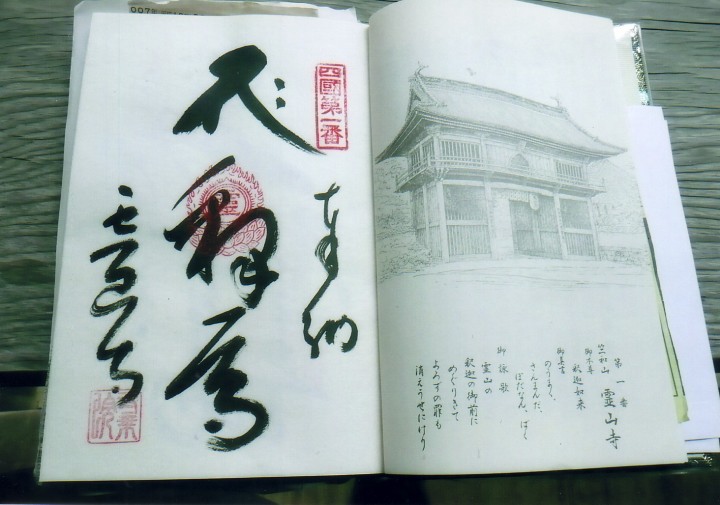 第一番
竺和山 霊山寺
御本尊
釈迦如来
御真言
のうまく、
さんまんだ、
ぼだなん、ばく
御詠歌
霊山の
釈迦の御前に
めぐりきて
よろずの罪も
消えうせにけり
四國第一番
奉納
霊山寺
007年